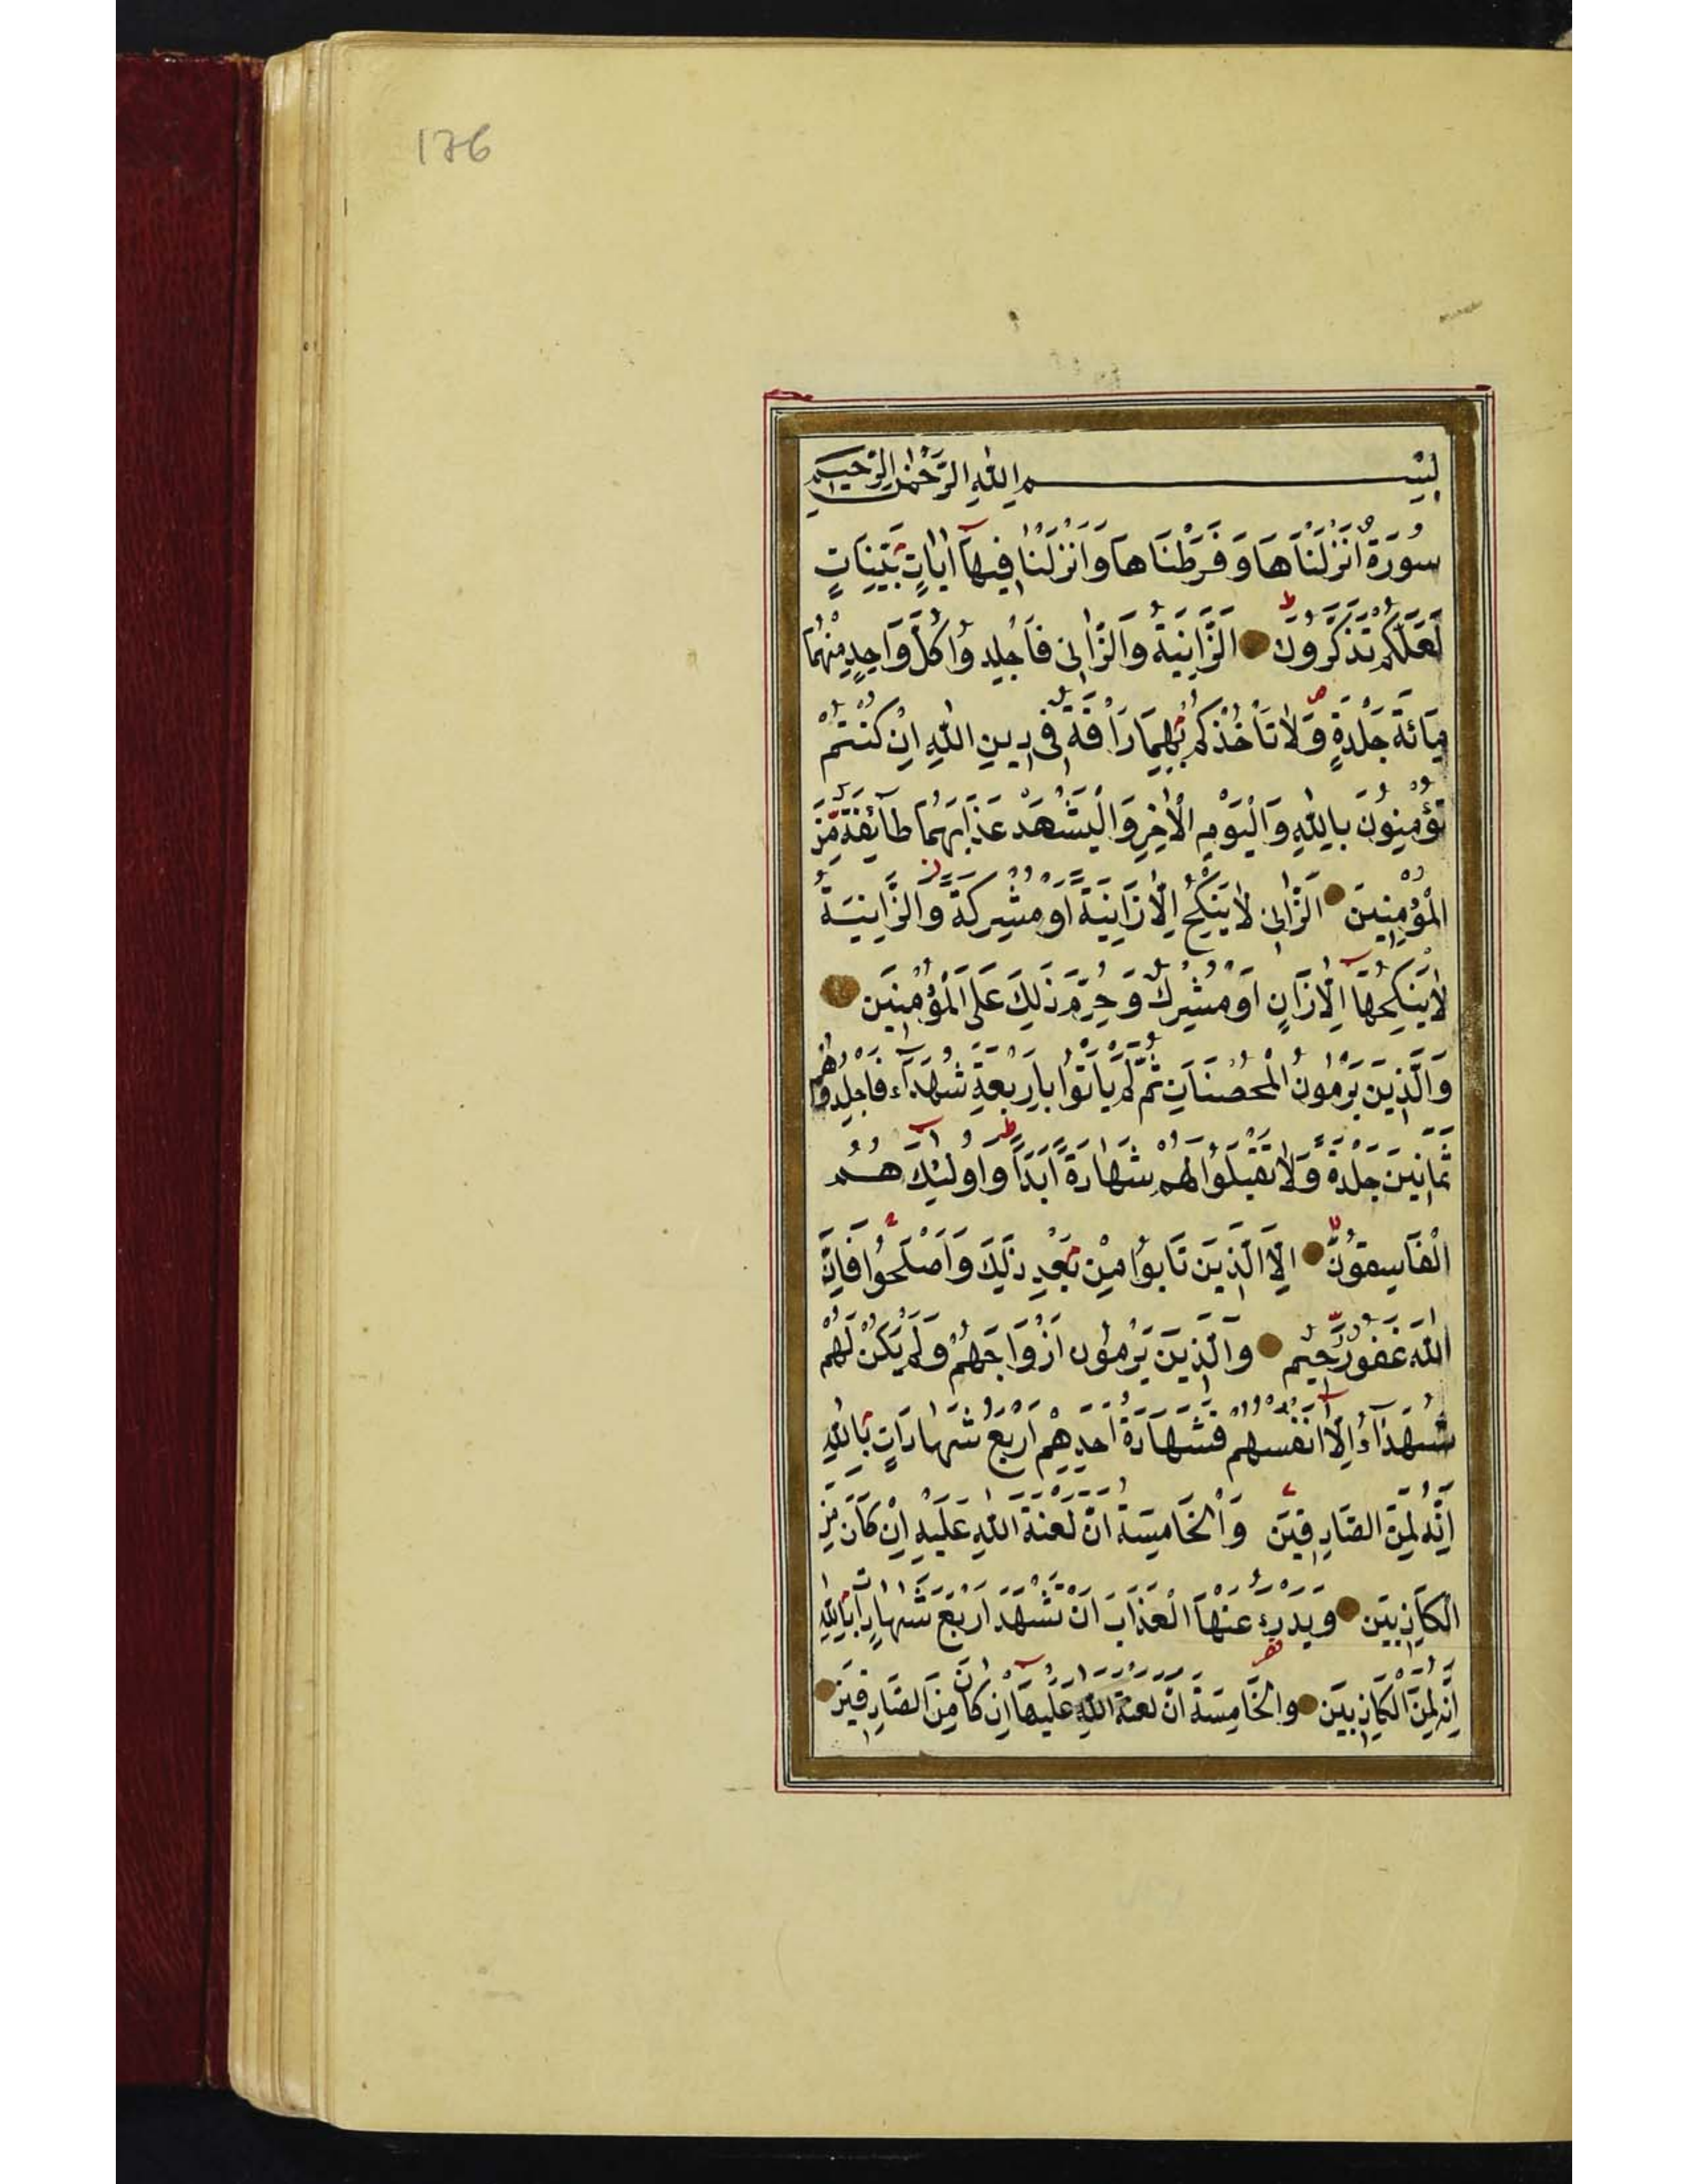 176
بِسْمِ اللهِ الرَّحْمٰنِ الرَّحِيمِ
سُورَةٌ اَنْزَلْنَاهَا وَفَرَطْنَاهَا وَاَنْزَلْنَا فِيهَآ اٰيَاتٍ بَيِّنَاتٍ
لَعَلَّكُمْ تَذَكَّرُونَ الزَّانِيَةُ وَالزَّانِى فَاجْلِدُوا كُلَّ وَاحِدٍ مِنْهُمَا
مِائَةَ جَلْدَةٍ وَّلَا تَأْخُذْكُمْ بِهِمَا رَاْفَةٌ فِى دِينِ اللهِ اِنْ كُنْتُمْ
تُؤْمِنُونَ بِاللهِ وَالْيَوْمِ الْاٰخِرِ وَالْيَشْهَدْ عَذَابَهُمَا طَآئِفَةٌ مِّنَ
الْمُؤْمِنِينَ الزَّانِى لَا يَنْكِحُ اِلَّا زَانِيَةً اَوْ مُشْرِكَةً وَّالزَّانِيَةُ
لَا يَنْكِحُهَآ اِلَّا زَانٍ اَوْ مُشْرِكٌ وَحُرِّمَ ذٰلِكَ عَلَى الْمُؤْمِنِينَ
وَالَّذِينَ يَرْمُونَ الْمُحْصَنَاتِ ثُمَّ لَمْ يَاْتُوا بِاَرْبَعَةِ شُهَدَآءَ فَاجْلِدُوهُمْ
ثَمَانِينَ جَلْدَةً وَّلَا تَقْبَلُوا لَهُمْ شَهَادَةً اَبَدًا وَاُولٰئِكَ هُمُ
الْفَاسِقُونَ اِلَّا الَّذِينَ تَابُوا مِنْ بَعْدِ ذٰلِكَ وَاَصْلَحُوا فَاِنَّ
اللهَ غَفُورٌ رَّحِيمٌ وَالَّذِينَ يَرْمُونَ اَزْوَاجَهُمْ وَلَمْ يَكُنْ لَهُمْ
شُهَدَآءُ اِلَّا اَنْفُسُهُمْ فَشَهَادَةُ اَحَدِهِمْ اَرْبَعُ شَهَادَاتٍ بِاللهِ
اِنَّهُ لَمِنَ الصَّادِقِينَ وَالْخَامِسَةُ اَنَّ لَعْنَةَ اللهِ عَلَيْهِ اِنْ كَانَ مِنَ
الْكَاذِبِينَ وَيَدْرَءُ عَنْهَا الْعَذَابَ اَنْ تَشْهَدَ اَرْبَعَ شَهَادَاتٍ بِاللهِ
اِنَّهُ لَمِنَ الْكَاذِبِينَ وَالْخَامِسَةَ اَنَّ لَعْنَةَ اللهِ عَلَيْهَآ اِنْ كَانَ مِنَ الصَّادِقِينَ